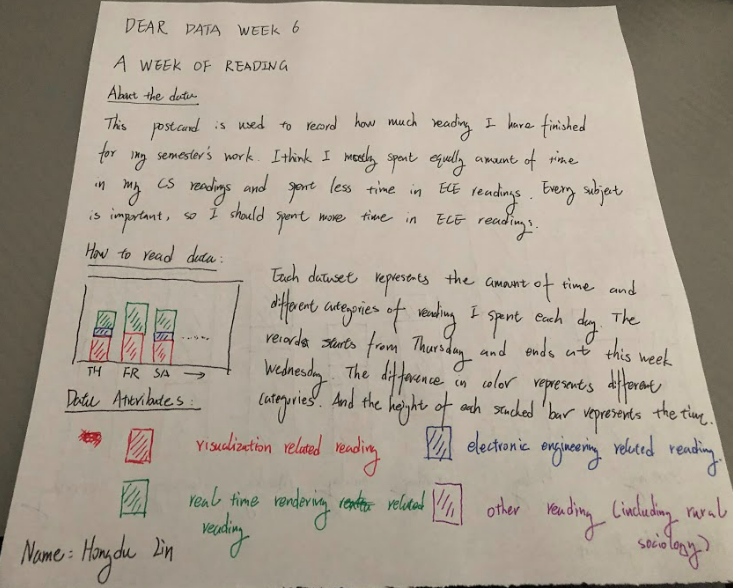 DEAR DATA WEEK 6
A WEEK OF READING
About the data
This postcard is used to record how much reading I have finished
for my semester's work. I think I mostly spent equally amount of time
in my CS readings and spent less time in ECE readings. Every subject
is important, so I should spent more time in ECE readings.
How to read data:
Each dataset represents the amount of time and
different categories of reading I spent each day. The
records starts from Thursday and ends at this week
Wednesday. The difference in color represents different
categories. And the height of each stacked bar represents the time.
TH FR SA
Data Attributes:
visualization related reading
electronic engineering related reading.
real time rendering related
reading
other reading (including rural
sociology)
Name: Hongdu Lin